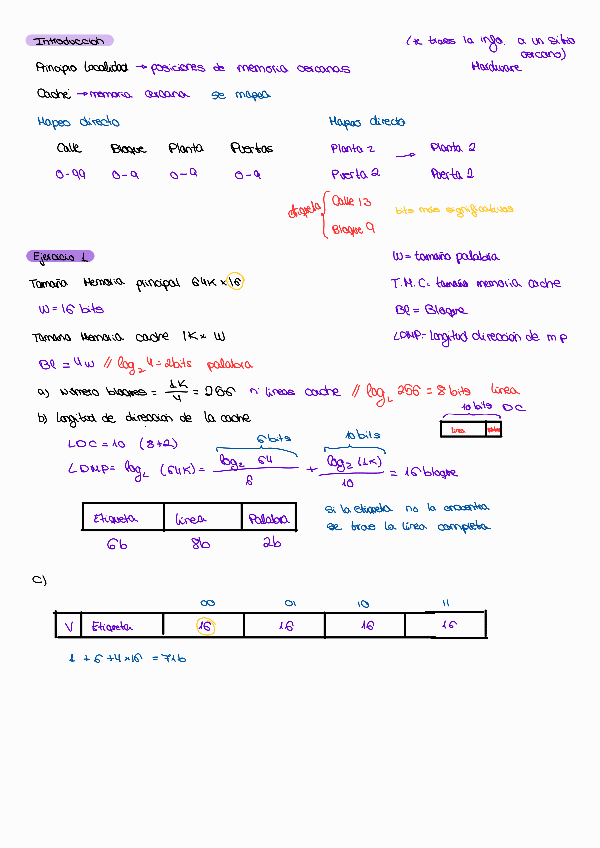 Introducción
(te traes la info. a un sitio cercano)
Principio Localidad → posiciones de memoria cercanas
Hardware
Caché → memoria cercana se mapea
Mapeo directo
Mapeo directo
Calle Bloque Planta Puertas
Planta 2 → Planta 2
0-99 0-9 0-9 0-9
Puerta 2 Puerta 2
etiqueta { Calle 13
bits más significativos
Bloque 9
Ejercicio 1
W = tamaño palabra
Tamaño Memoria principal 64K × 16
T.M.C. = tamaño memoria cache
W = 16 bits
Bl = Bloque
Tamaño Memoria cache 1K × W
LDMP = longitud dirección de mp
Bl = 4W // log₂ 4 = 2bits palabra
a) número bloques = 1K/4 = 256 nº líneas cache // log₂ 256 = 8 bits línea
10 bits DC
b) longitud de dirección de la cache
línea
LDC = 10 (8+2)
6 bits 10 bits
LDMP = log₂ (64K) = log₂ 64 / 6 + log₂ (1K) / 10 = 16 bloque
Etiqueta línea Palabra
Si la etiqueta no la encuentra
se trae la línea completa
6b 8b 2b
C)
00 01 10 11
V Etiqueta 16 16 16 16
1 + 6 + 4×16 = 71b